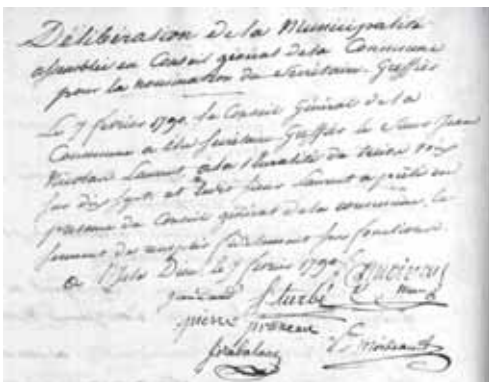 Délibération de la Municipalité
assemblée en Conseil général de la Commune
pour la nomination du Secrétaire Greffier
Le 7 février 1790, le Conseil Général de la
Commune a élu Secrétaire Greffier le Sieur Jean
Nicolas Laurent, à la pluralité de treize voix
sur dix sept, et ledit Sieur Laurent a prêté en
présence du Conseil général de la commune, le
serment de remplir fidèlement ses fonctions.
à l'Isle Dieu, le 7 février 1790
f. turbé
pierre